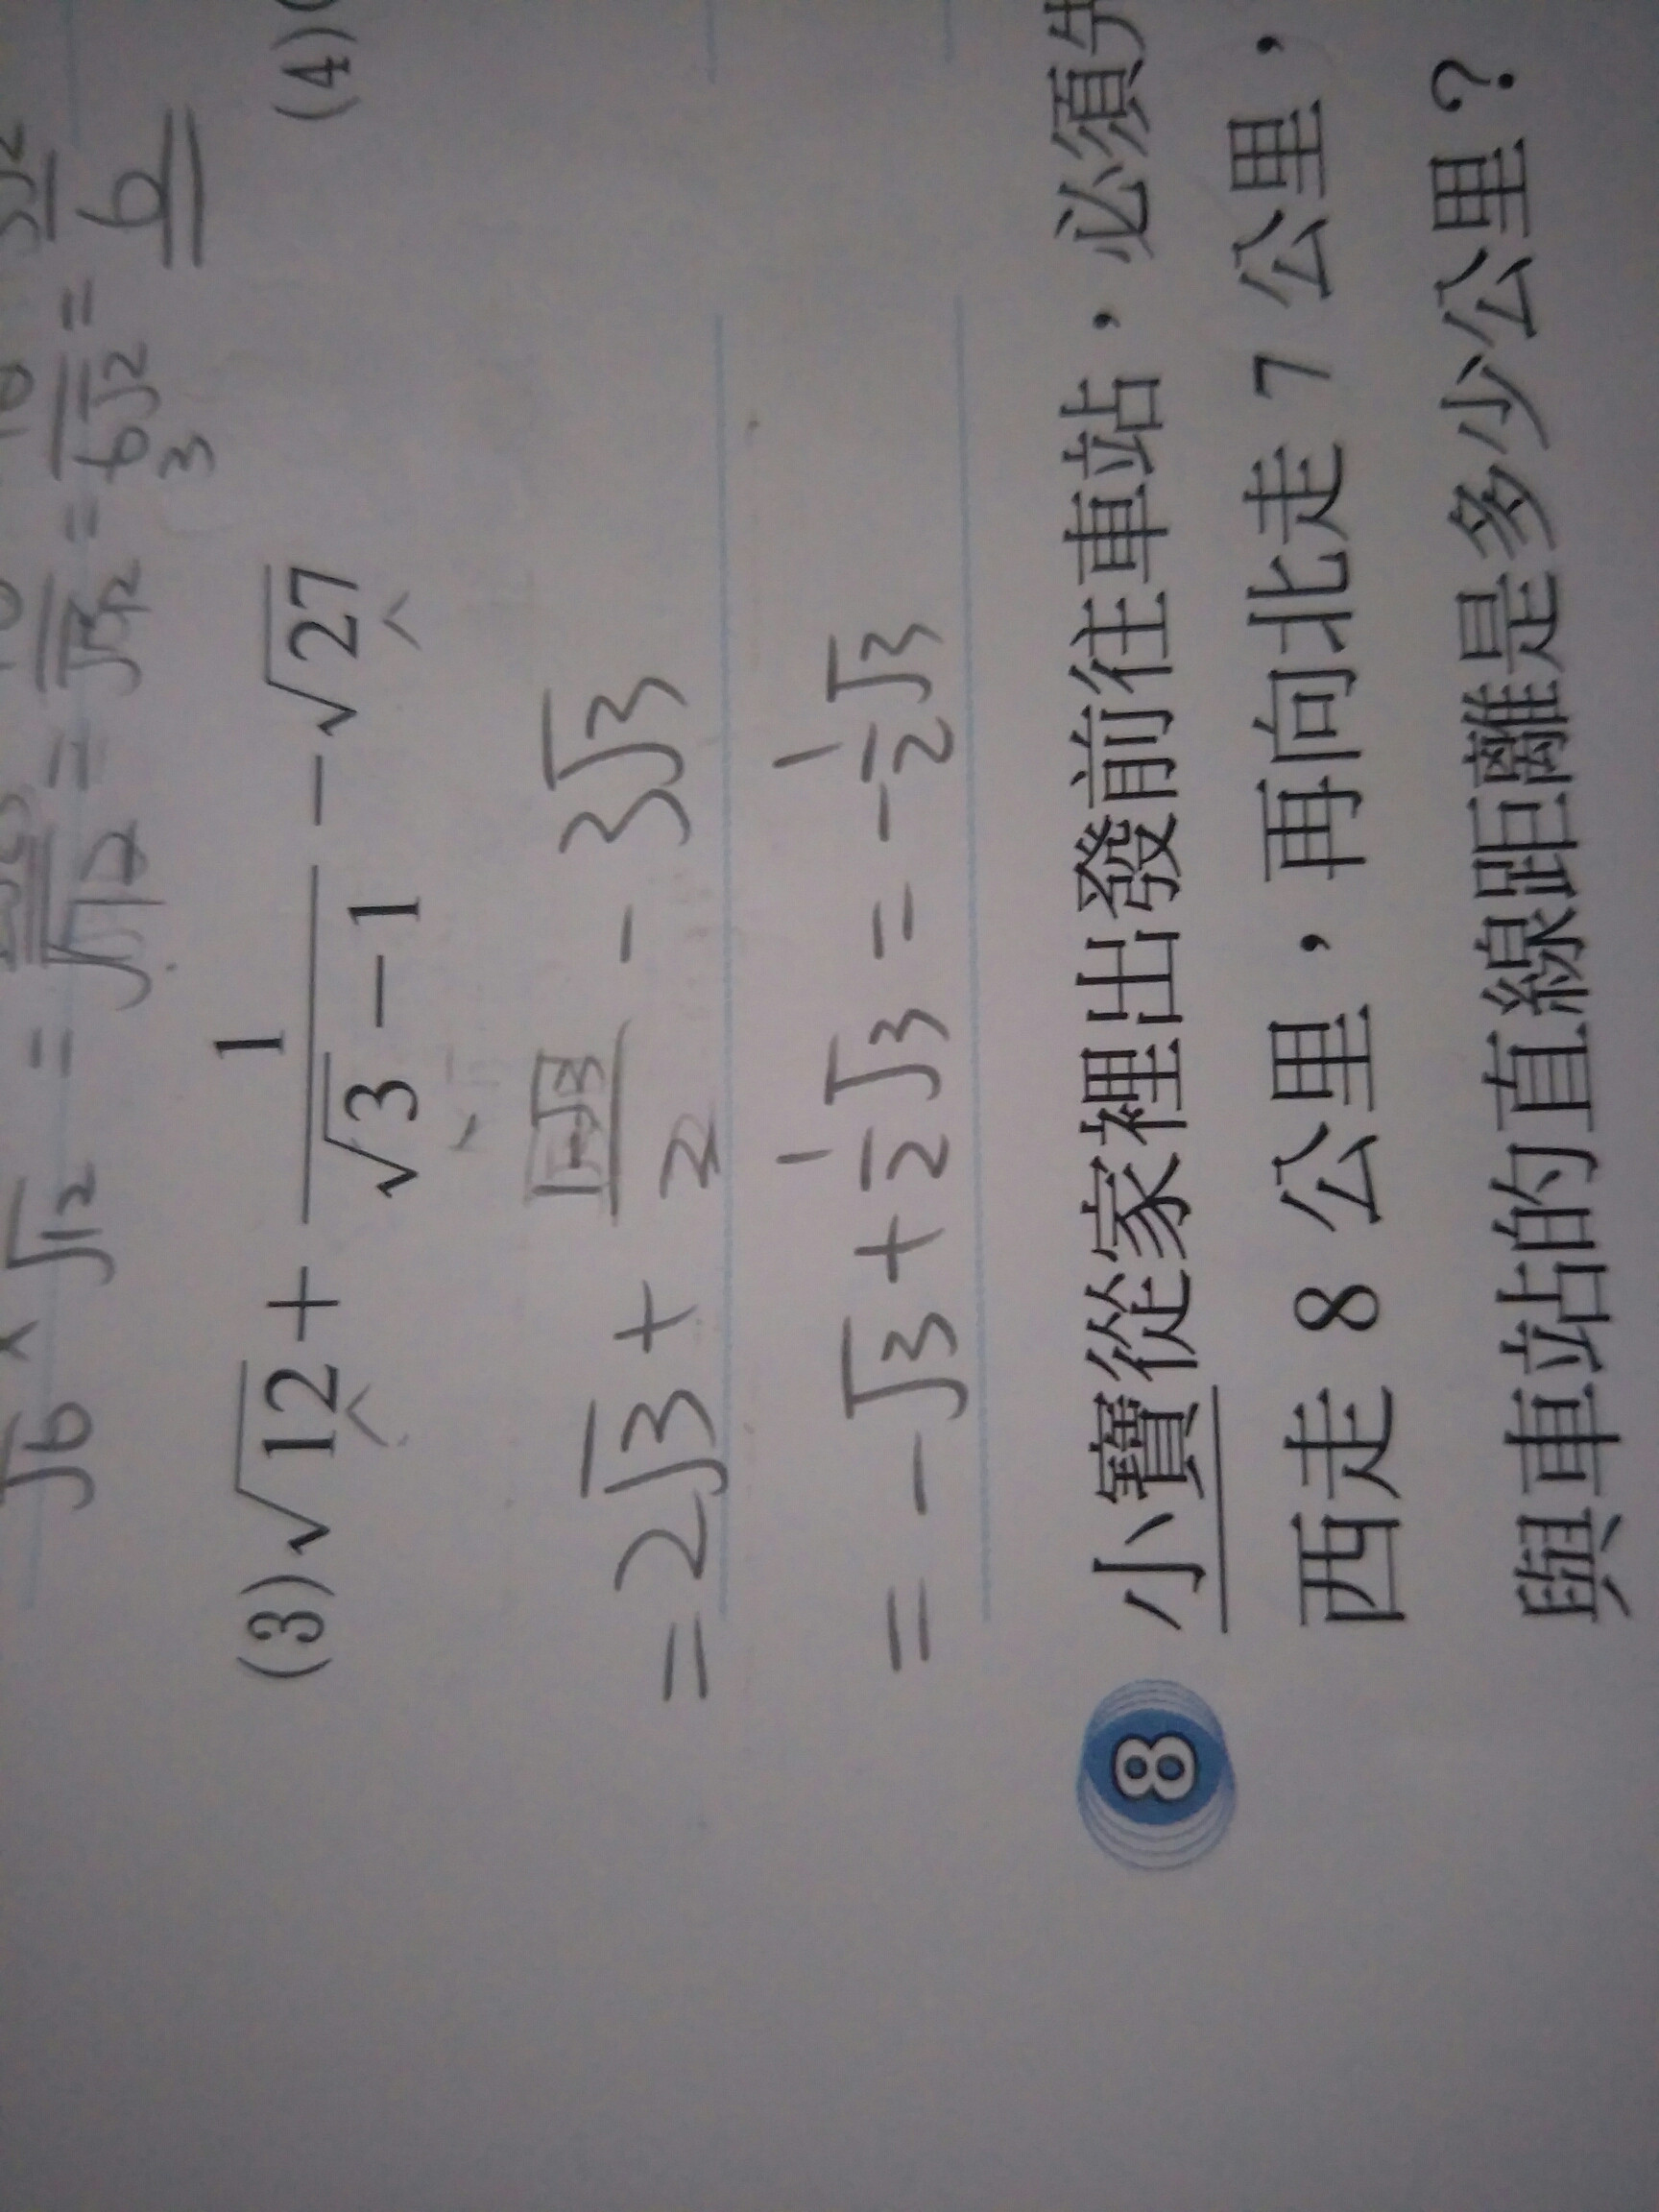 √6 × √12 =
= √3/2 = 6√2/3 = 6
(3) √12 + 1/(√3 − 1) − √27
(4)
= 2√3 + (1-√3)/2 - 3√3
= -√3 + 1/2 √3 = -1/2 √3
8 小寶從家裡出發前往車站，必須
西走 8 公里，再向北走 7 公里，
與車站的直線距離是多少公里？